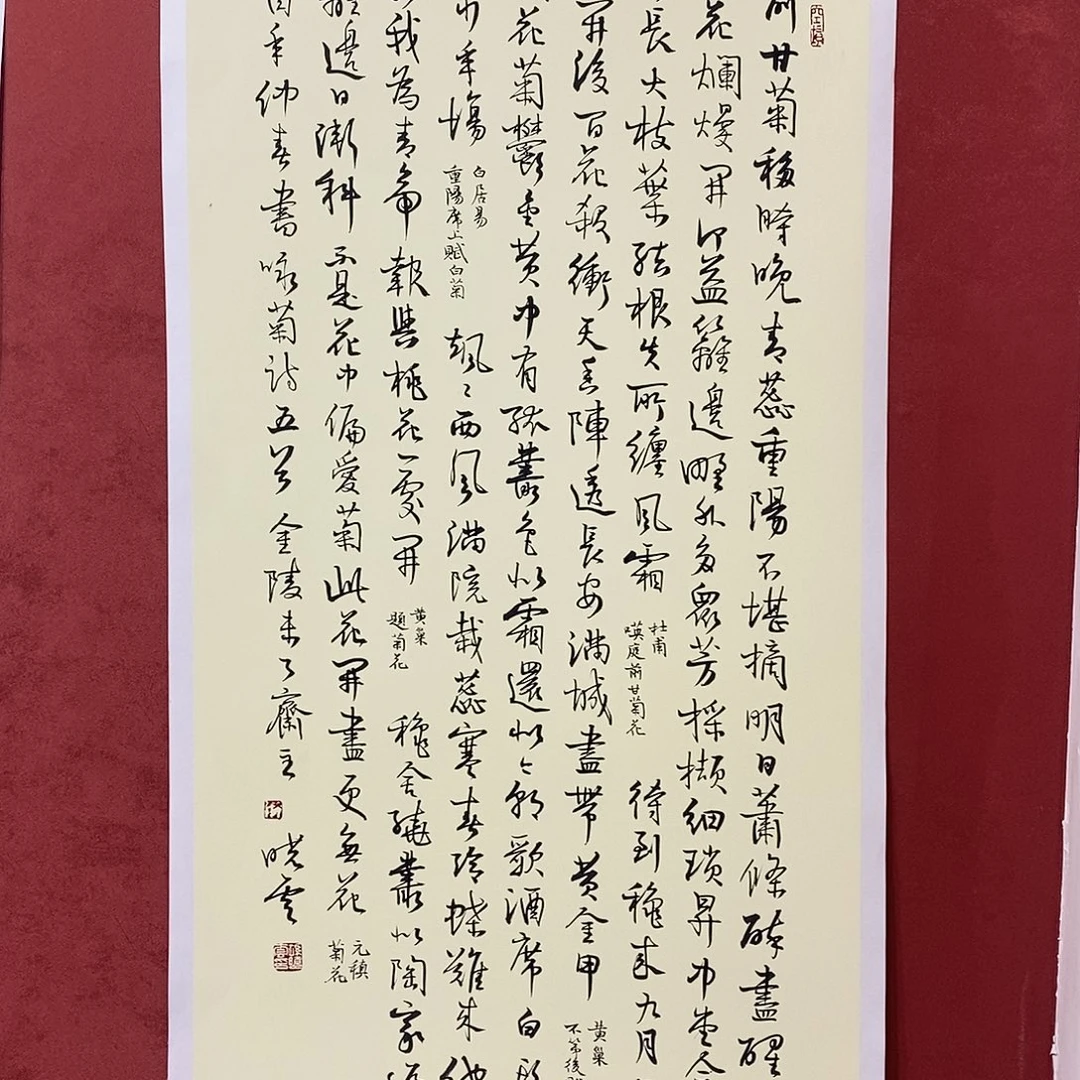 前甘菊移時晚青蕊重陽不堪摘明日蕭條醉盡醒
花爛熳開何益籬邊野外多眾芳採擷細瑣昇中堂念
長大枝葉結根失所纏風霜
杜甫
嘆庭前甘菊花
待到穐來九月
開後百花殺衝天香陣透長安滿城盡帶黃金甲
黃巢
不第後
花菊鬱金黃中有孤叢色似霜還似今朝歌酒席白
少年場
白居易
重陽席上賦白菊
颯々西風滿院栽蕊寒香冷蝶難來他
我為青帝報與桃花一處開
黃巢
題菊花
穐舍繞叢似陶家
籬邊日漸斜不是花中偏愛菊此花開盡更無花
元稹
菊花
年仲春書詠菊詩五首金陵未了齋主
曉雲